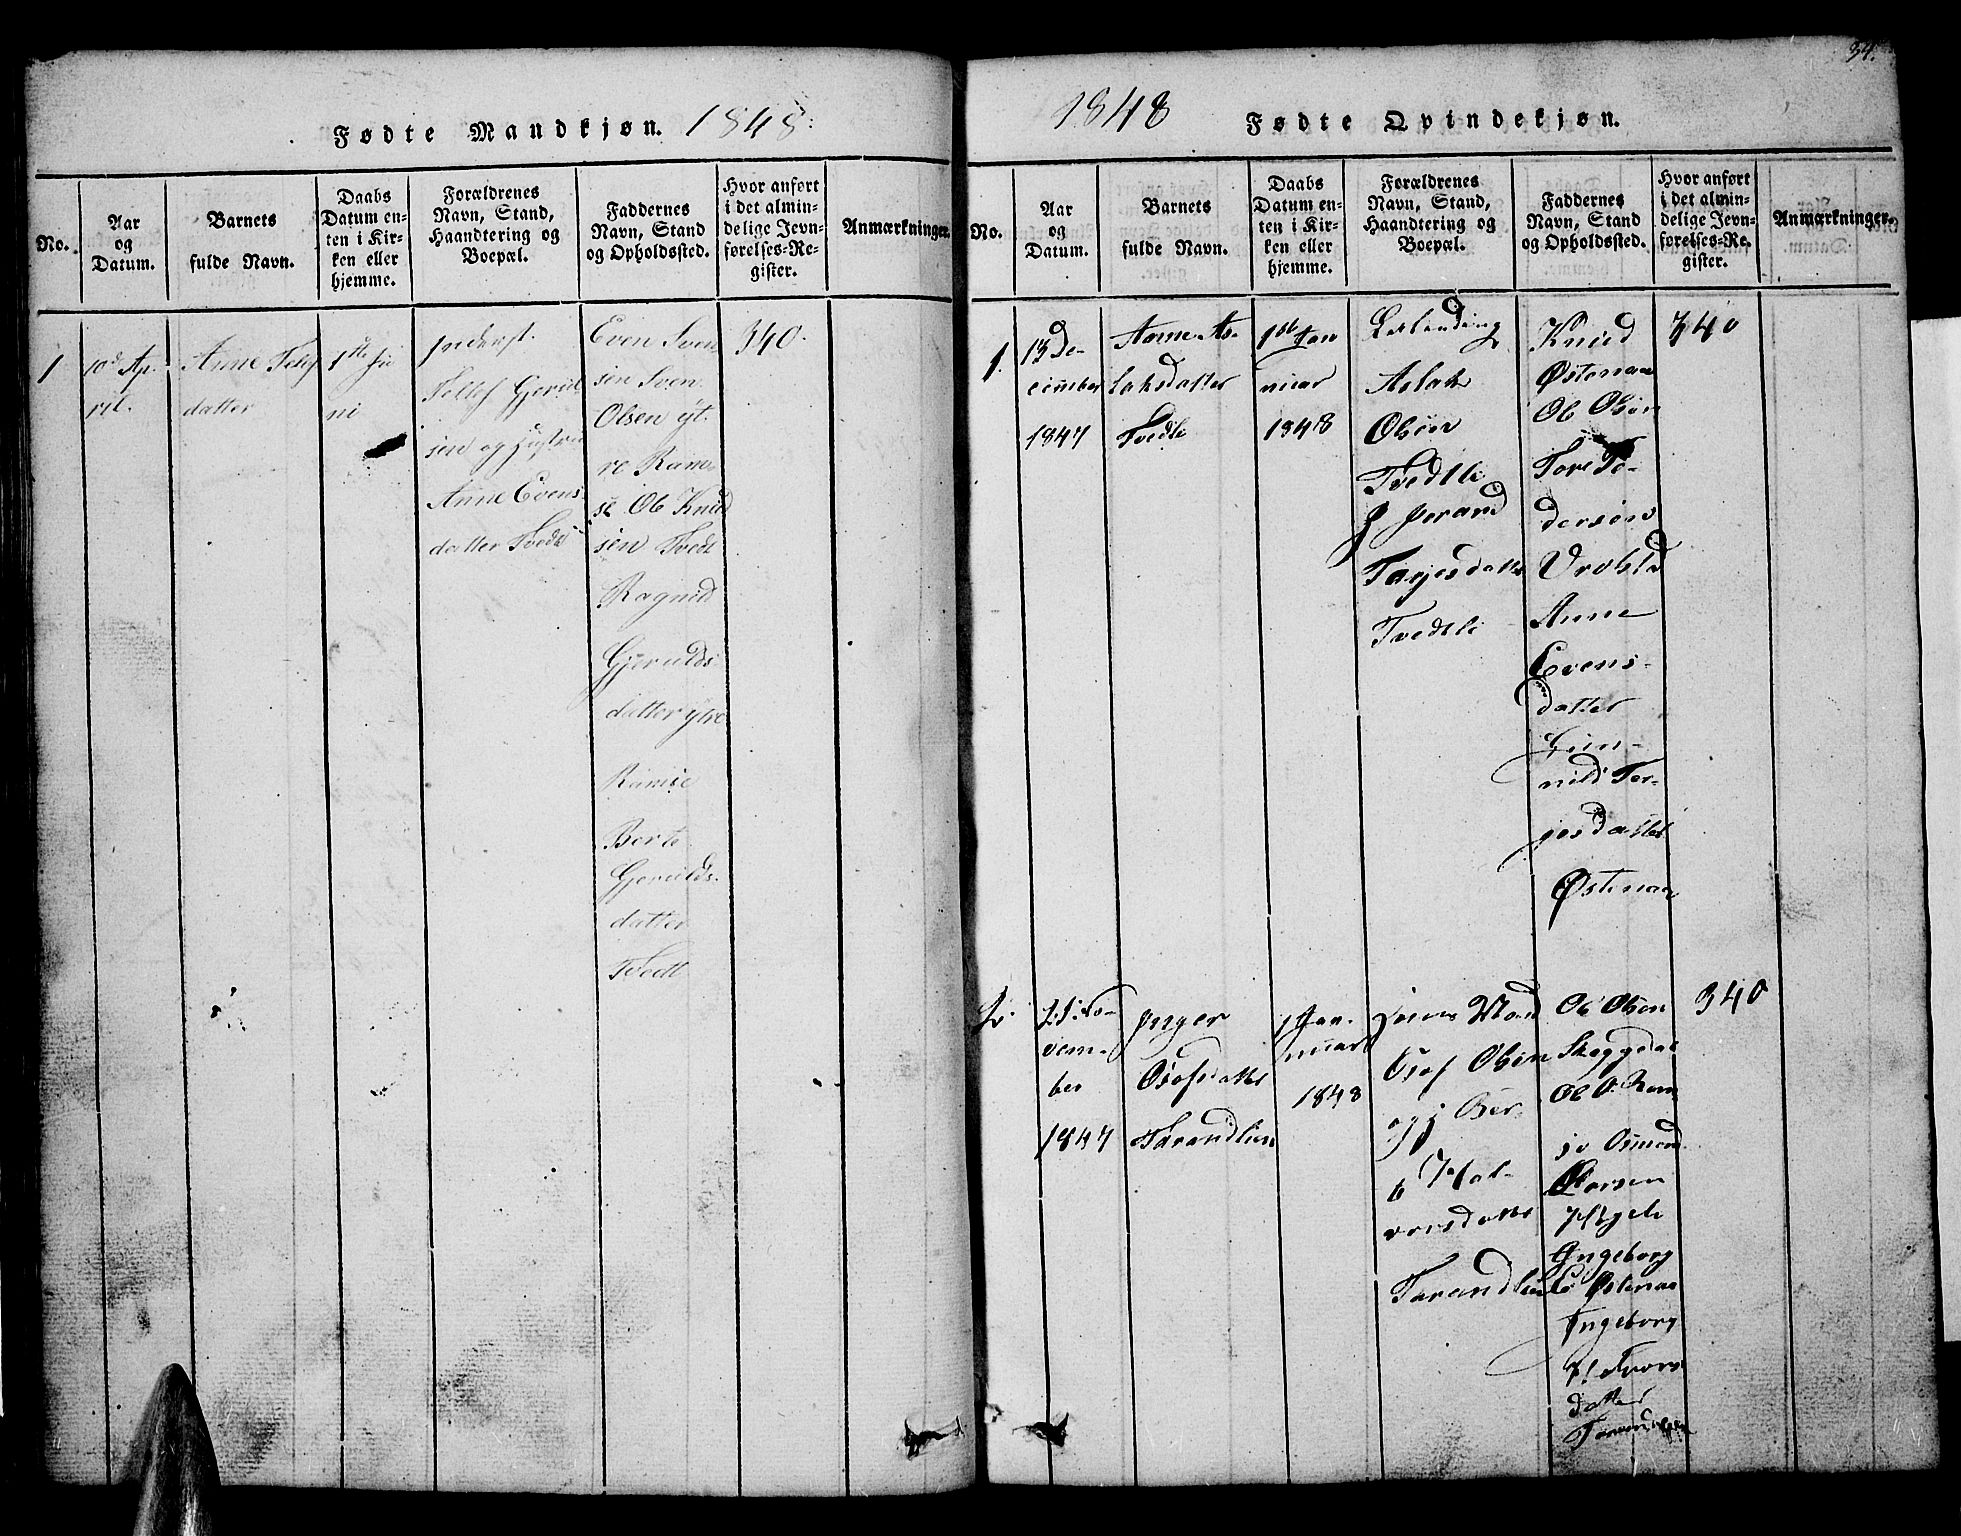 34.
Fødte Mandkjøn. 1848.
No.
Aar
og
Datum.
Barnets
fulde Navn.
Daabs
Datum en-
ten i Kir-
ken eller
hjemme.
Forældrenes
Navn, Stand,
Haandtering og
Boepæl.
Faddernes
Navn, Stand
og Opholdssted.
Hvor anført
i det almin-
delige Jevn-
førelses-Re-
gister.
Anmærkninger.
1
10de Ap-
ril.
Anne Tellef
datter
1ste Ju
ni
Inderst.
Tellef Gjeruld
sen og Hustru
Anne Evens
datter Tvedt
Even Sven
sen Sven
Olsen yt.
re Ramse
se Ole Knud
sen Tvedt
Ragnild
Gjerulds
datter ytre
Ramse
Berte
Gjerulds.
datter
Tvedt
340.
1848 Fødte Qvindekjøn.
No.
Aar
og
Datum.
Barnets
fulde Navn.
Daabs
Datum en-
ten i Kir-
ken eller
hjemme.
Forældrenes
Navn, Stand,
Haandtering og
Boepæl.
Faddernes
Navn, Stand
og Opholdssted.
Hvor anført
i det almin-
delige Jevn-
førelses-Re-
gister.
Anmærkninger.
1.
13 De-
cember
1847
Anne As-
laksdatter
Tvedte
1ste Jan
nuar
1848
Aslak
Olsen
Tvedtli
Tarjesdatter
Tvedtli
Knud
Østenaa
Ole Olsen
Tore To-
dersen
Anne
Evens-
datter
Gun-
nild Ter-
jesdatter
Østenaa
340
2.
21 No-
vem-
ber
1847
Inger
Osofsdatter
Tarandlien
1 Jan-
nuar
1848
Osof Olsen
og Ber-
t Hal-
vorsdatter
Tarandlien
Ole Olsen
Skeggedal
Ole O. Ram
se Osmond
Olorsen
Ingeborg
Østenaa
Ingeborg
H Tvors
datter
340